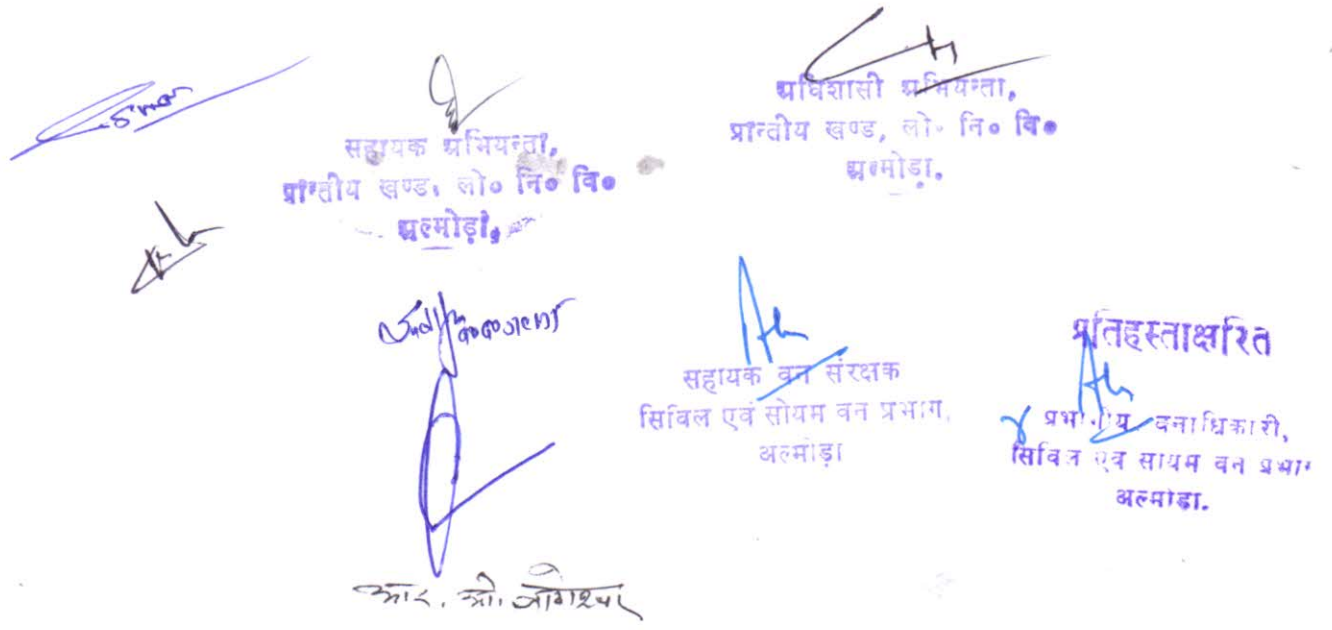 सहायक अभियन्ता,
प्रान्तीय खण्ड, लो० नि० वि०
अल्मोड़ा,
अधिशासी अभियन्ता,
प्रान्तीय खण्ड, लो० नि० वि०
अल्मोड़ा.
सहायक वन संरक्षक
सिविल एवं सोयम वन प्रभाग,
अल्मोड़ा
प्रतिहस्ताक्षरित
प्रभागीय वनाधिकारी,
सिविल एवं सोयम वन प्रभाग
अल्मोड़ा.
आर. ओ. जागेश्वर